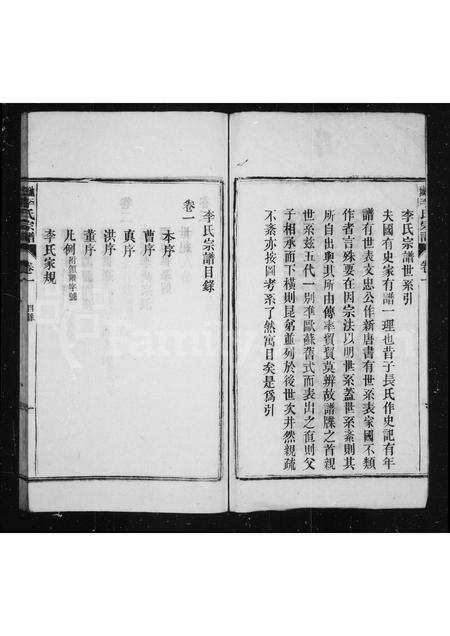 李氏宗譜世系引
夫國有史家有譜一理也昔子長氏作史記有年
譜有世表文忠公作新唐書有世系表家國不類
作者言殊要在因宗法以明世系蓋世系紊則其
所自出與其所由傳率貿貿莫辨故譜牒之首視
世系茲五代一別準歐蘇舊式而表出之直則父
子相承而下橫則昆弟並列於後世次井然親疏
不紊亦按圖考系了然寓目矣是為引
李氏宗譜
卷一
李氏宗譜目錄
卷一
本序
曹序
真序
洪序
董序
凡例
李氏家規
李氏宗譜
卷一
目錄